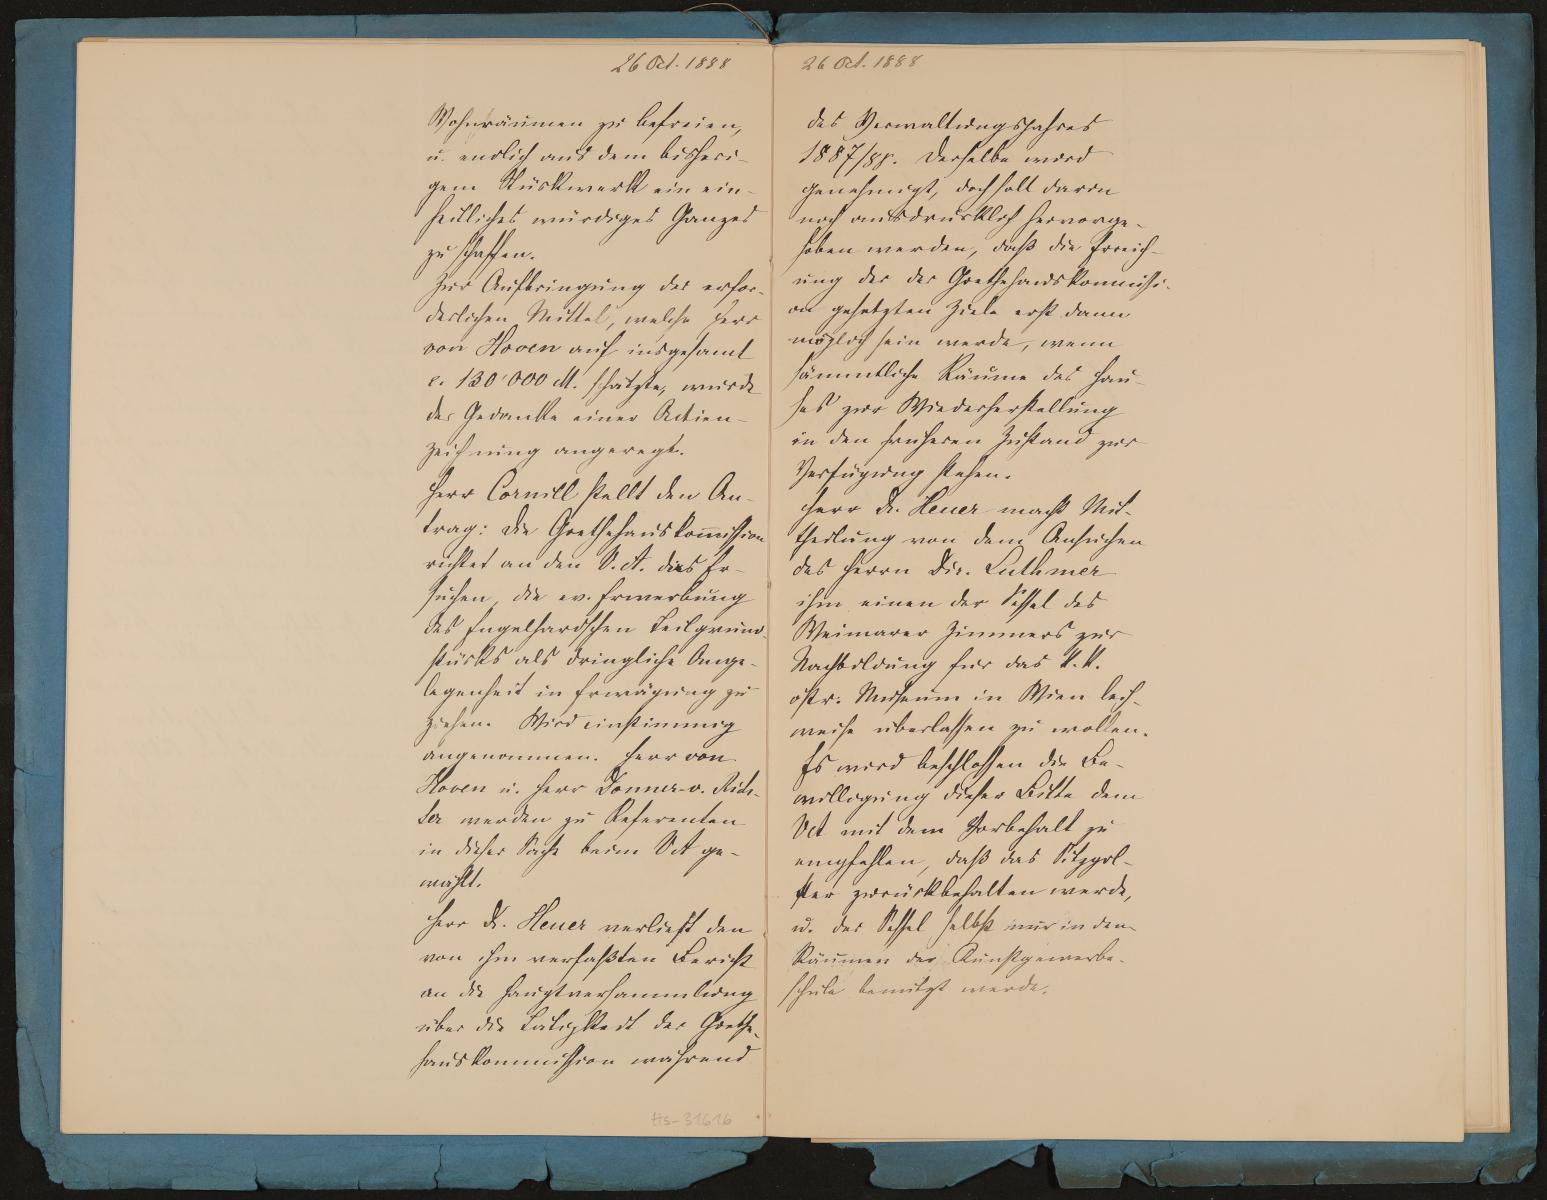 26 Oct. 1888
Wohnräumen zu befreien,
u. endlich aus dem bisheri-
gem Stückwerk ein ein-
heitliches würdiges Ganzes
zu schaffen.
Zur Aufbringung der erfor-
derlichen Mittel, welche Herr
von Hoven auf insgesamt
c. 130'000 M. schätzte, wurde
der Gedanke einer Actien-
zeichnung angeregt.
Herr Cornill stellt den An-
trag: die Goethehauskom̅ission
richtet an den V.A. das Er-
suchen, die ev. Erwerbung
des Engelhardschen Teilgrund-
stücks als dringliche Ange-
legenheit in Erwägung zu
ziehen. Wird einstimmig
angenommen. Herr von
Hoven u. Herr Donner-v. Rich-
ter werden zu Referenten
in dieser Sache beim VA ge-
wählt.
Herr Dr. Heuer verliest den
von ihm verfaßten Bericht
an die Hauptversammlung
über die Tätigkeit der Goethe-
hauskommission während
Hs-31616
26 Oct. 1888
des Verwaltungsjahres
1887/88. Derselbe wird
genehmigt, doch soll darin
noch ausdrücklich hervorge-
hoben werden, daß die Erreich-
ung der der Goethehauskommissi-
on gesetzten Ziele erst dann
möglich sein werde, wenn
sämmtliche Räume des Hau-
ses zur Wiederherstellung
in den früheren Zustand zur
Verfügung stehen.
Herr Dr. Heuer macht Mit-
theilung von dem Ansuchen
des Herrn Dir. Luthmer
ihm einen der Sessel des
Weimarer Zimmers zur
Nachbildung für das K.K.
östr. Museum in Wien leih-
weise überlassen zu wollen.
Es wird beschlossen die Be-
willigung dieser Bitte dem
VA mit dem Vorbehalt zu
empfehlen, daß das Sitzpol-
ster zurückbehalten werde,
u. der Sessel selbst nur in den
Räumen der Kunstgewerbe-
schule benützt werde.